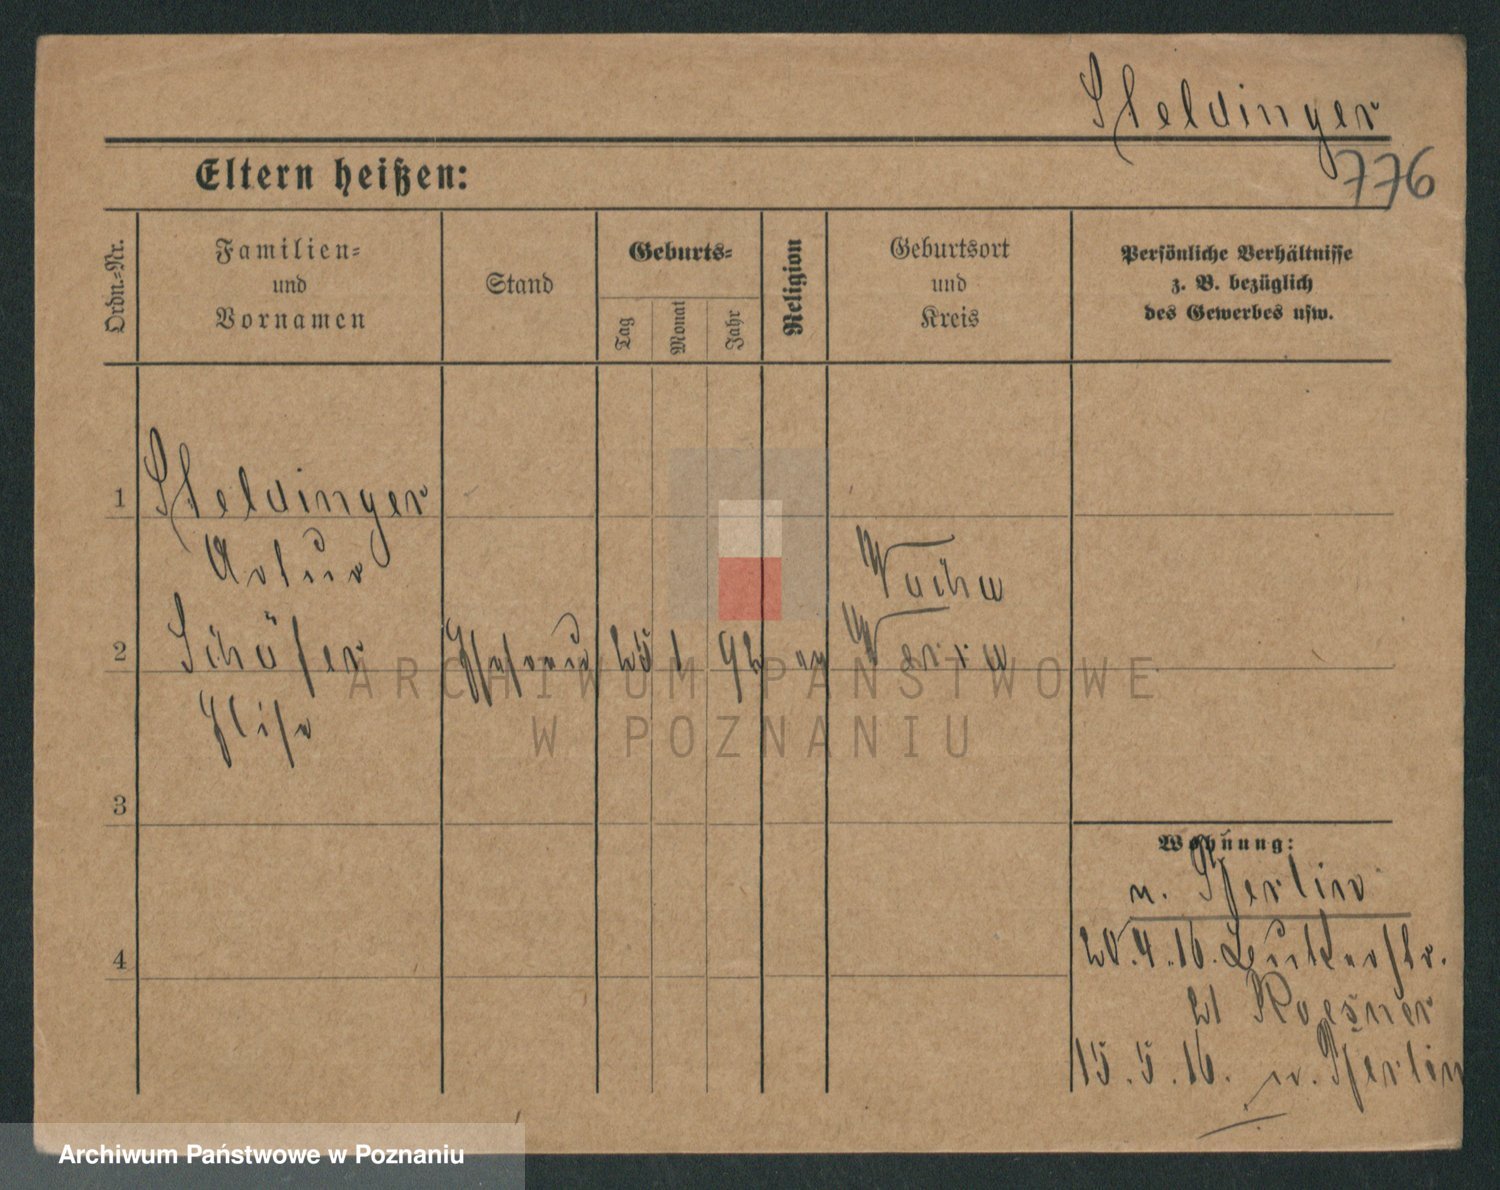 Steldinger
776
Eltern heißen:
Ordn.-Nr.
Familien-
und
Vornamen
Stand
Geburts-
Tag
Monat
Jahr
Religion
Geburtsort
und
Kreis
Persönliche Verhältnisse
z. B. bezüglich
des Gewerbes usw.
1 Steldinger
Artur
2 Schäfer
Ehefrau 25 1 92 ev
Elise
Vacha
Werra
3
4
Wohnung:
n. Berlin
20.4.16.
21 Roesner
15.5.16. n. Berlin
ARCHIWUM PAŃSTWOWE
W POZNANIU
Archiwum Państwowe w Poznaniu